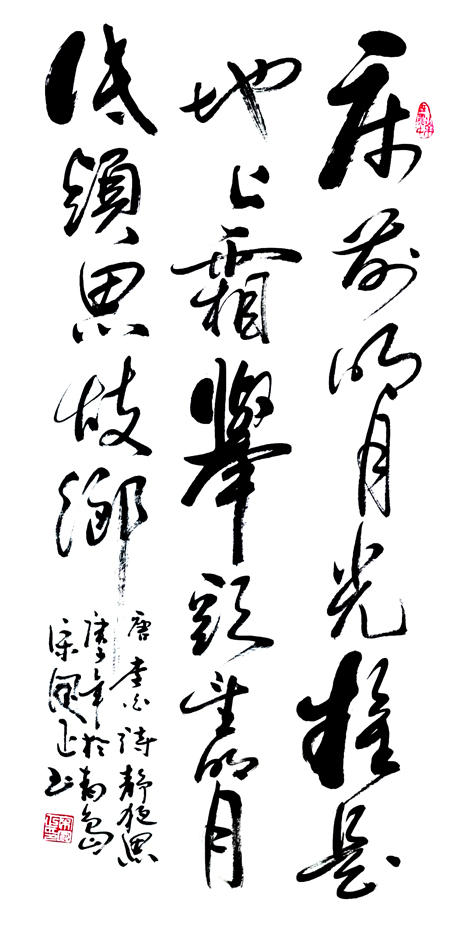 床前明月光疑是
地上霜舉頭望明月
低頭思故鄉
唐李白詩靜夜思
庚子年於青島
宋正书